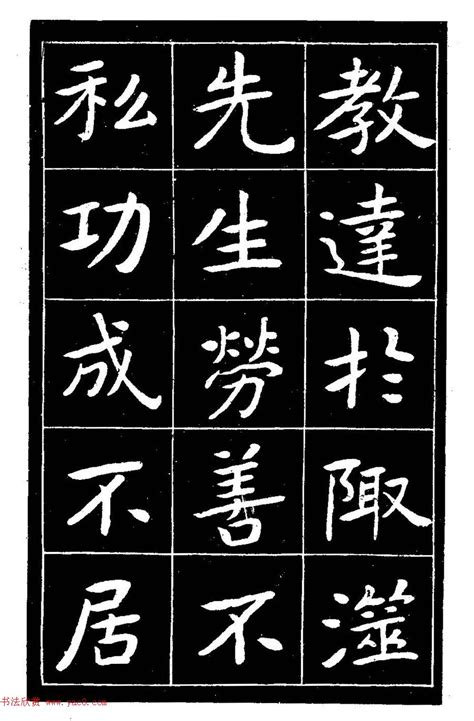 教達於陬澨
先生勞善不
私功成不居
书法欣赏 www.yac8.com